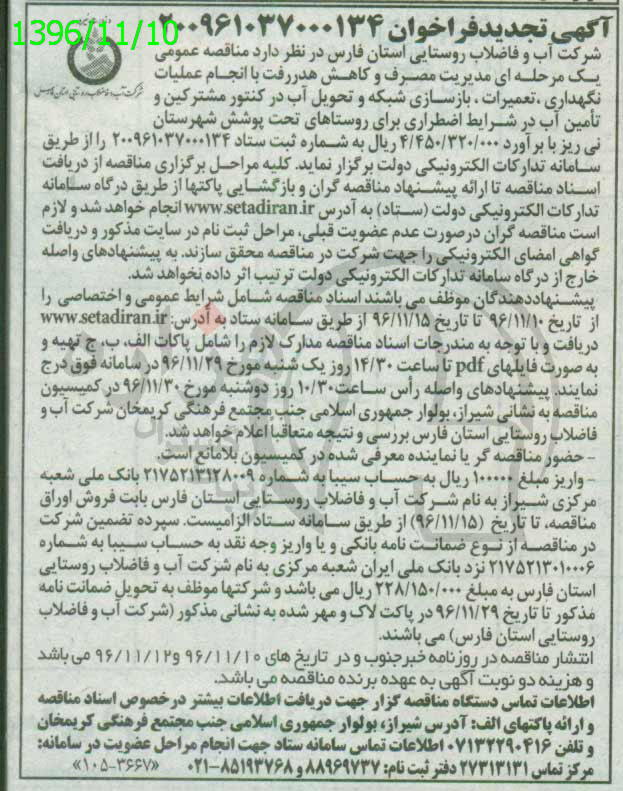 1396/11/10
آگهی تجدید فراخوان ۲۰۰۹۶۱۰۳۷۰۰۰۱۳۴
شرکت آب و فاضلاب روستایی استان فارس در نظر دارد مناقصه عمومی
شرکت آب و فاضلاب روستایی استان فارس
یک مرحله ای مدیریت مصرف و کاهش هدررفت با انجام عملیات
نگهداری ،تعمیرات ، بازسازی شبکه و تحویل آب در کنتور مشترکین و
تأمین آب در شرایط اضطراری برای روستاهای تحت پوشش شهرستان
نی ریز با برآورد ۴/۴۵۰/۳۲۰/۰۰۰ ریال به شماره ثبت ستاد ۲۰۰۹۶۱۰۳۷۰۰۰۱۳۴ را از طریق
سامانه تدارکات الکترونیکی دولت برگزار نماید. کلیه مراحل برگزاری مناقصه از دریافت
اسناد مناقصه تا ارائه پیشنهاد مناقصه گران و بازگشایی پاکتها از طریق درگاه سامانه
تدارکات الکترونیکی دولت (ستاد) به آدرس www.setadiran.ir انجام خواهد شد و لازم
است مناقصه گران درصورت عدم عضویت قبلی، مراحل ثبت نام در سایت مذکور و دریافت
گواهی امضای الکترونیکی را جهت شرکت در مناقصه محقق سازند. به پیشنهادهای واصله
خارج از درگاه سامانه تدارکات الکترونیکی دولت ترتیب اثر داده نخواهد شد.
پیشنهاددهندگان موظف می باشند اسناد مناقصه شامل شرایط عمومی و اختصاصی را
از تاریخ ۹۶/۱۱/۱۰ تا تاریخ ۹۶/۱۱/۱۵ از طریق سامانه ستاد به آدرس: www.setadiran.ir
دریافت و با توجه به مندرجات اسناد مناقصه مدارک لازم را شامل پاکات الف، ب، ج تهیه و
به صورت فایلهای pdf تا ساعت ۱۴/۳۰ روز یک شنبه مورخ ۹۶/۱۱/۲۹ در سامانه فوق درج
نمایند. پیشنهادهای واصله رأس ساعت ۱۰/۳۰ روز دوشنبه مورخ ۹۶/۱۱/۳۰ در کمیسیون
مناقصه به نشانی شیراز، بولوار جمهوری اسلامی جنب مجتمع فرهنگی کریمخان شرکت آب و
فاضلاب روستایی استان فارس بررسی و نتیجه متعاقباً اعلام خواهد شد.
- حضور مناقصه گر یا نماینده معرفی شده در کمیسیون بلامانع است.
- واریز مبلغ ۱۰۰۰۰۰ ریال به حساب سیبا به شماره ۲۱۷۵۲۱۳۱۲۸۰۰۹ بانک ملی شعبه
مرکزی شیراز به نام شرکت آب و فاضلاب روستایی استان فارس بابت فروش اوراق
مناقصه، تا تاریخ (۹۶/۱۱/۱۵) از طریق سامانه ستاد الزامیست. سپرده تضمین شرکت
در مناقصه از نوع ضمانت نامه بانکی و یا واریز وجه نقد به حساب سیبا به شماره
۲۱۷۵۲۱۳۰۱۰۰۰۶ نزد بانک ملی ایران شعبه مرکزی به نام شرکت آب و فاضلاب روستایی
استان فارس به مبلغ ۲۲۸/۱۵۰/۰۰۰ ریال می باشد و شرکتها موظف به تحویل ضمانت نامه
مذکور تا تاریخ ۹۶/۱۱/۲۹ در پاکت لاک و مهر شده به نشانی مذکور (شرکت آب و فاضلاب
روستایی استان فارس) می باشند.
انتشار مناقصه در روزنامه خبرجنوب و در تاریخ های ۹۶/۱۱/۱۰ و ۹۶/۱۱/۱۲ می باشد
و هزینه دو نوبت آگهی به عهده برنده مناقصه می باشد.
اطلاعات تماس دستگاه مناقصه گزار جهت دریافت اطلاعات بیشتر درخصوص اسناد مناقصه
و ارائه پاکتهای الف: آدرس شیراز، بولوار جمهوری اسلامی جنب مجتمع فرهنگی کریمخان
و تلفن ۰۷۱۳۲۲۹۰۴۱۶ اطلاعات تماس سامانه ستاد جهت انجام مراحل عضویت در سامانه:
مرکز تماس ۲۷۳۱۳۱۳۱ دفتر ثبت نام: ۸۸۹۶۹۷۳۷ و ۸۵۱۹۳۷۶۸-۰۲۱ «۱۰۵-۳۶۶۷»